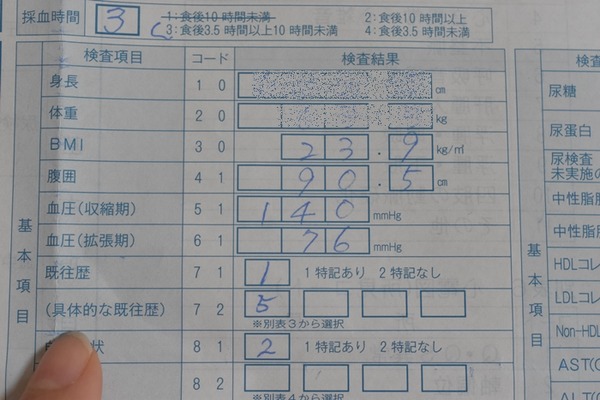 採血時間 3 1：食後10時間未満 2：食後10時間以上
3：食後3.5時間以上10時間未満 4：食後3.5時間未満
検査項目 コード 検査結果
身長 1 0 cm
体重 2 0 kg
BMI 3 0 23.9 kg/㎡
腹囲 4 1 90.5 cm
血圧(収縮期) 5 1 140 mmHg
血圧(拡張期) 6 1 76 mmHg
既往歴 7 1 1 1 特記あり 2 特記なし
(具体的な既往歴) 7 2 5
※別表3から選択
状 8 1 2 1 特記あり 2 特記なし
8 2
※別表4から選択
基本項目
検査
尿糖
尿蛋白
尿検査
未実施の
中性脂肪
中性脂肪
HDLコレ
LDLコレ
Non-HDL
AST(G
ALT(G
基本項目